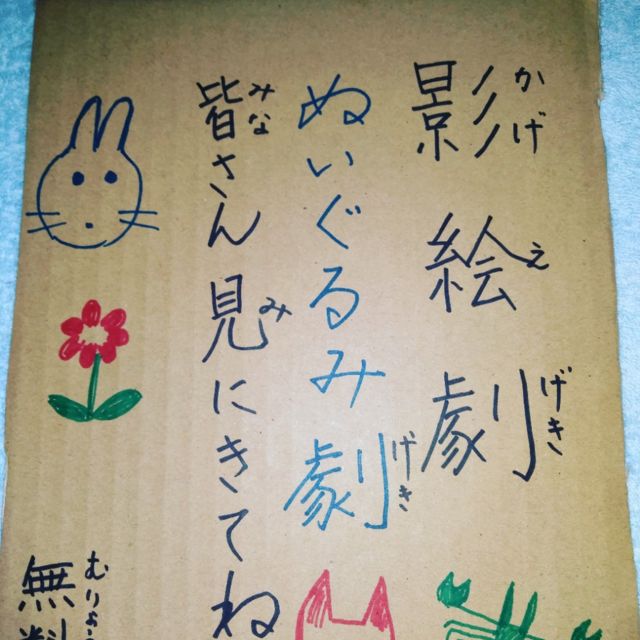 影絵劇
かげえげき
ぬいぐるみ劇
げき
皆さん見にきてね
みなみ
無料
むりょう